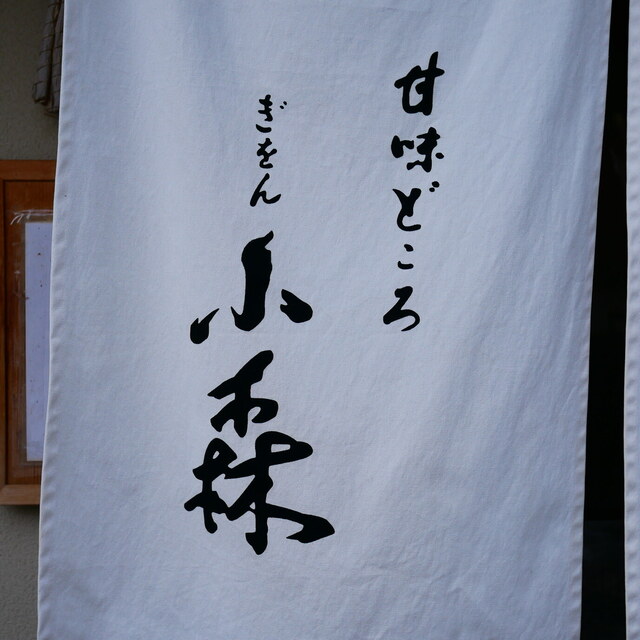 甘味どころ
ぎをん
小森